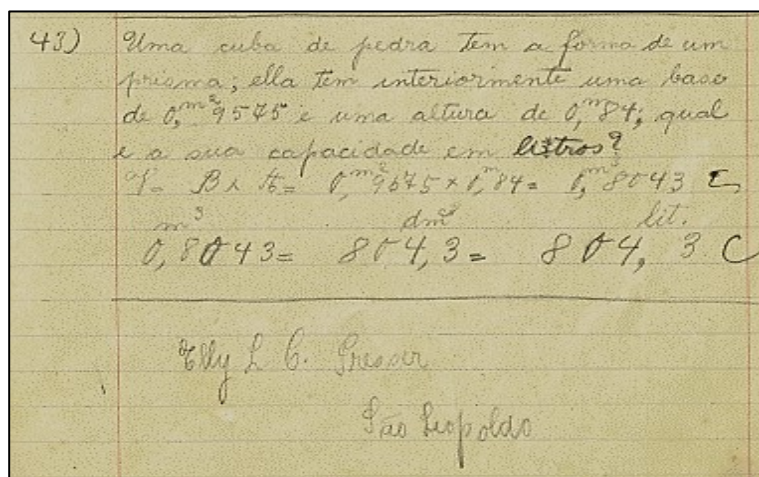 43) Uma cuba de pedra tem a forma de um
prisma; ella tem interiormente uma base
de 0,m²9575 e uma altura de 0,m84; qual
é a sua capacidade em litros?
V= B x A= 0,m²9575 x 0,m84= 0,m³8043 C
m³ dm³ lit.
0,8043= 804,3= 804,3 C
Elly L C. Presser
São Leopoldo